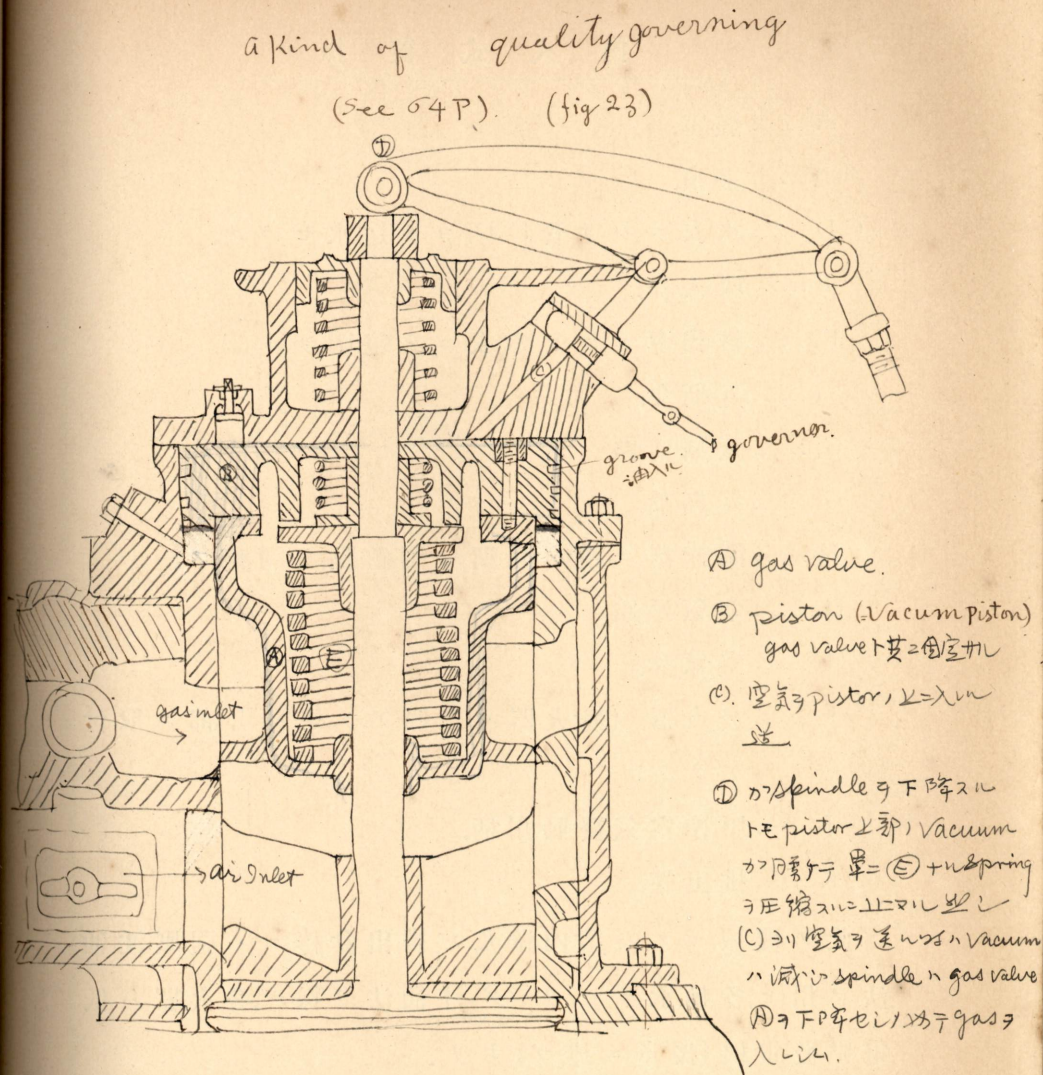 a kind of quality governing
(See 64P). (fig 23)
Ⓓ
Ⓒ
governer.
groove.
油入ル
Ⓑ
Ⓐ
Ⓔ
gas inlet
air Inlet
Ⓐ gas valve.
Ⓑ piston (Vacum piston)
gas valveト共ニ固定サル
(C). 空気ヲpistonノ上ニ入ルル
道
Ⓓ ガspindleヲ下降スル
トモpiston上部ノVacuum
ガ ケテ單ニⒺナルSpring
ヲ圧縮スルニ止マル 
(C)ヨリ空気ヲ送ル ハVacuum
ハ減ジspindleハgas valve
Ⓐヲ下降セシメ テgasヲ
入レシム.